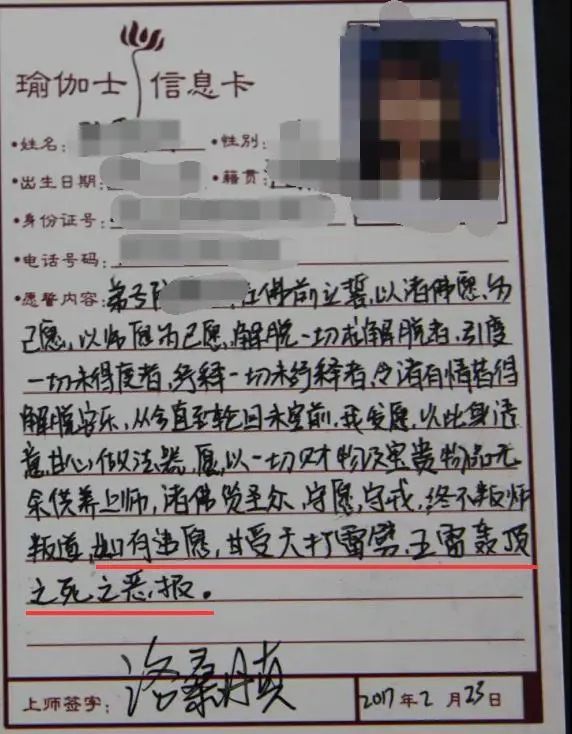 瑜伽士 信息卡
•姓名: •性别:
•出生日期: •籍贯:
•身份证号:
•电话号码:
•愿誓内容: 弟子 在佛前立誓,以诸佛愿,为
己愿,以师愿为己愿,解脱一切未解脱者,引度
一切未得度者,统释一切未统释者,令诸有情皆得
解脱安乐,从今直到轮回未空前,我发愿,以此身语
意,甘心做法器,愿,以一切财物及宝贵物品无
余供养上师,诸佛贤圣众,守愿,守戒,终不叛师
叛道,如有违愿,甘受天打雷劈,五雷轰顶
之死之恶报。
上师签字: 洛桑丹真 2017年2月23日